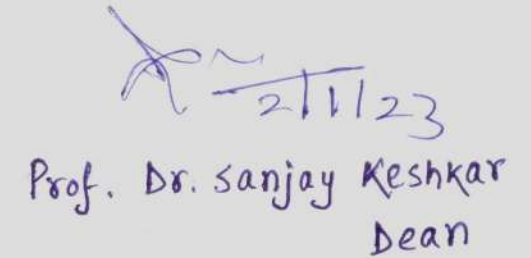 2/1/23
Prof. Dr. Sanjay Keshkar
Dean